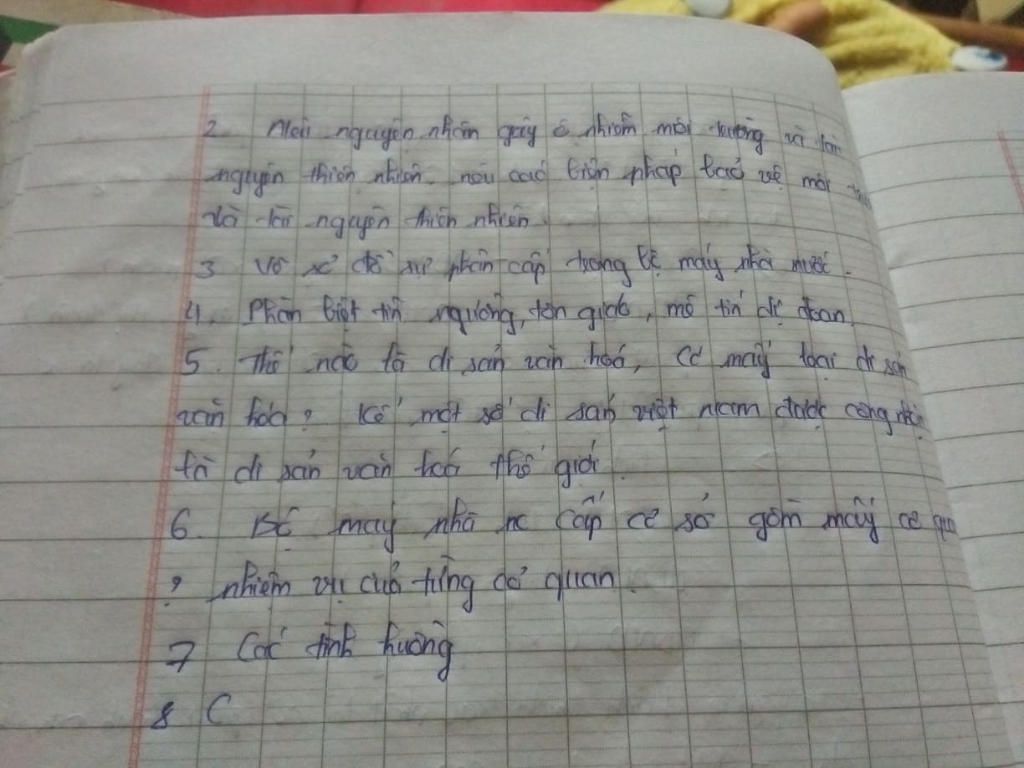 2. Nêu nguyên nhân gây ô nhiễm môi trường và tài
nguyên thiên nhiên. nêu các biện pháp bảo vệ môi
và tài nguyên thiên nhiên.
3 Vẽ sơ đồ sự phân cấp trong bộ máy nhà nước.
4. Phân biệt tín ngưỡng, tôn giáo, mê tín dị đoan.
5. Thế nào là di sản văn hoá, Có mấy loại di sản
văn hóa? Kể một số di sản việt nam được công nhận
là di sản văn hoá thế giới.
6. Bộ máy nhà nc cấp cơ sở gồm mấy cơ qua
? nhiệm vụ của từng cơ quan.
7 Các tình huống
8 C